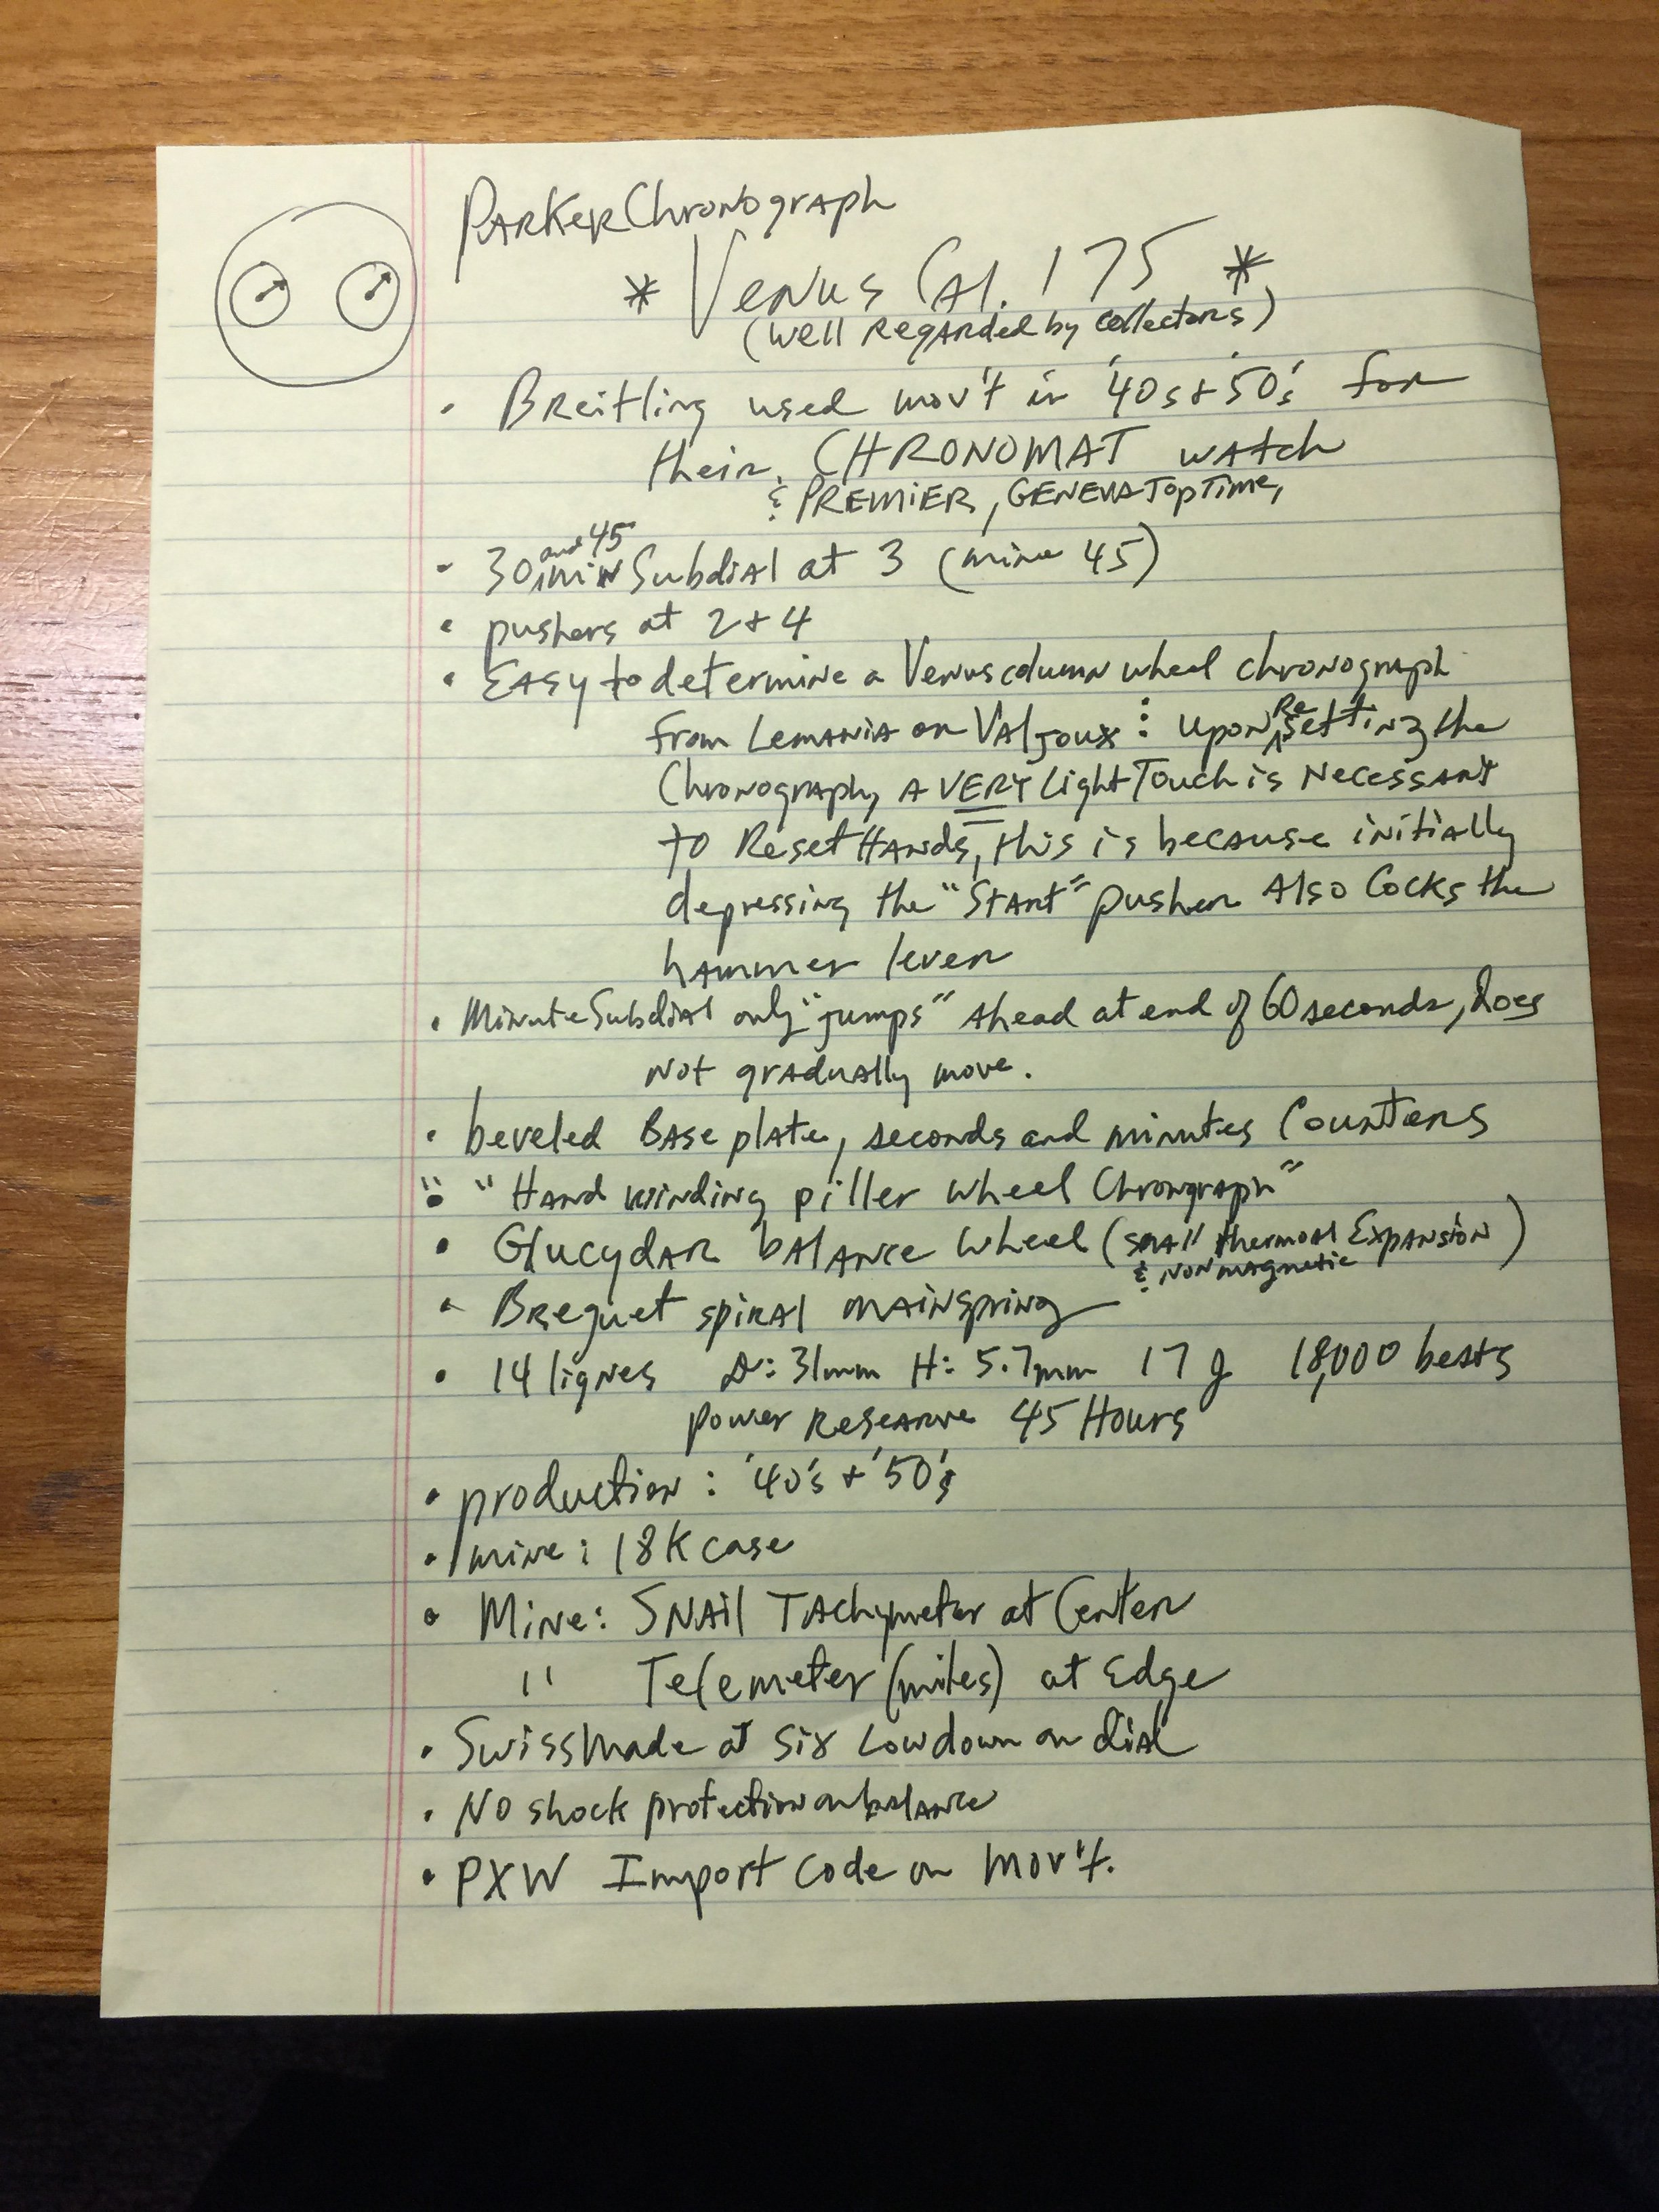 Parker Chronograph
* Venus Cal. 175 *
(well regarded by collectors)
• Breitling used mov't in '40s + '50's for
their CHRONOMAT watch
& PREMIER, GENEVA TopTime,
• 30 and 45 min Subdial at 3 (mine 45)
• pushers at 2 + 4
• Easy to determine a Venus column wheel chronograph
from Lemania or Valjoux: upon Resetting the
Chronograph, a VERY Light Touch is Necessary
to Reset Hands, this is because initially
depressing the "Start" pusher Also Cocks the
hammer lever
• Minute Subdial only "jumps" ahead at end of 60 seconds, does
not gradually move.
• beveled Base plate, seconds and minutes Counters
• "Hand winding piller wheel Chrongraph"
• Glucydar balance wheel (small thermal Expansion)
& NONmagnetic
• Breguet spiral mainspring
• 14 lignes D: 31mm H: 5.7mm 17 J 18,000 beats
power Reserve 45 Hours
• production: '40's + '50's
• mine: 18K case
• Mine: SNAil Tachymeter at Center
" Telemeter (miles) at Edge
• Swiss Made at six Low down on dial
• No shock protection on balance
• PXW Import Code on mov't.